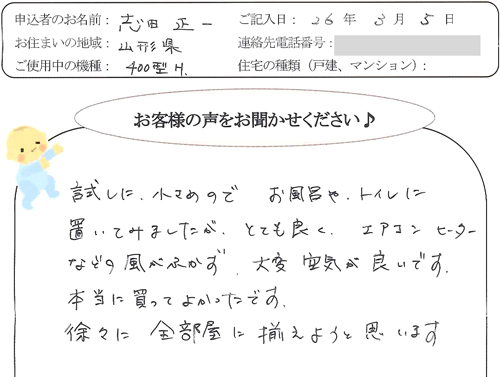 申込者のお名前： 志田 正一
ご記入日： 26 年 3 月 5 日
お住まいの地域： 山形県
連絡先電話番号：
ご使用中の機種： 400型H.
住宅の種類（戸建、マンション）：
お客様の声をお聞かせください♪
試しに、小さめので お風呂や、トイレに
置いてみましたが、とても良く、エアコン ヒーター
などの風がふかず、大変 空気が 良いです。
本当に買ってよかったです。
徐々に 全部屋に揃えようと思います